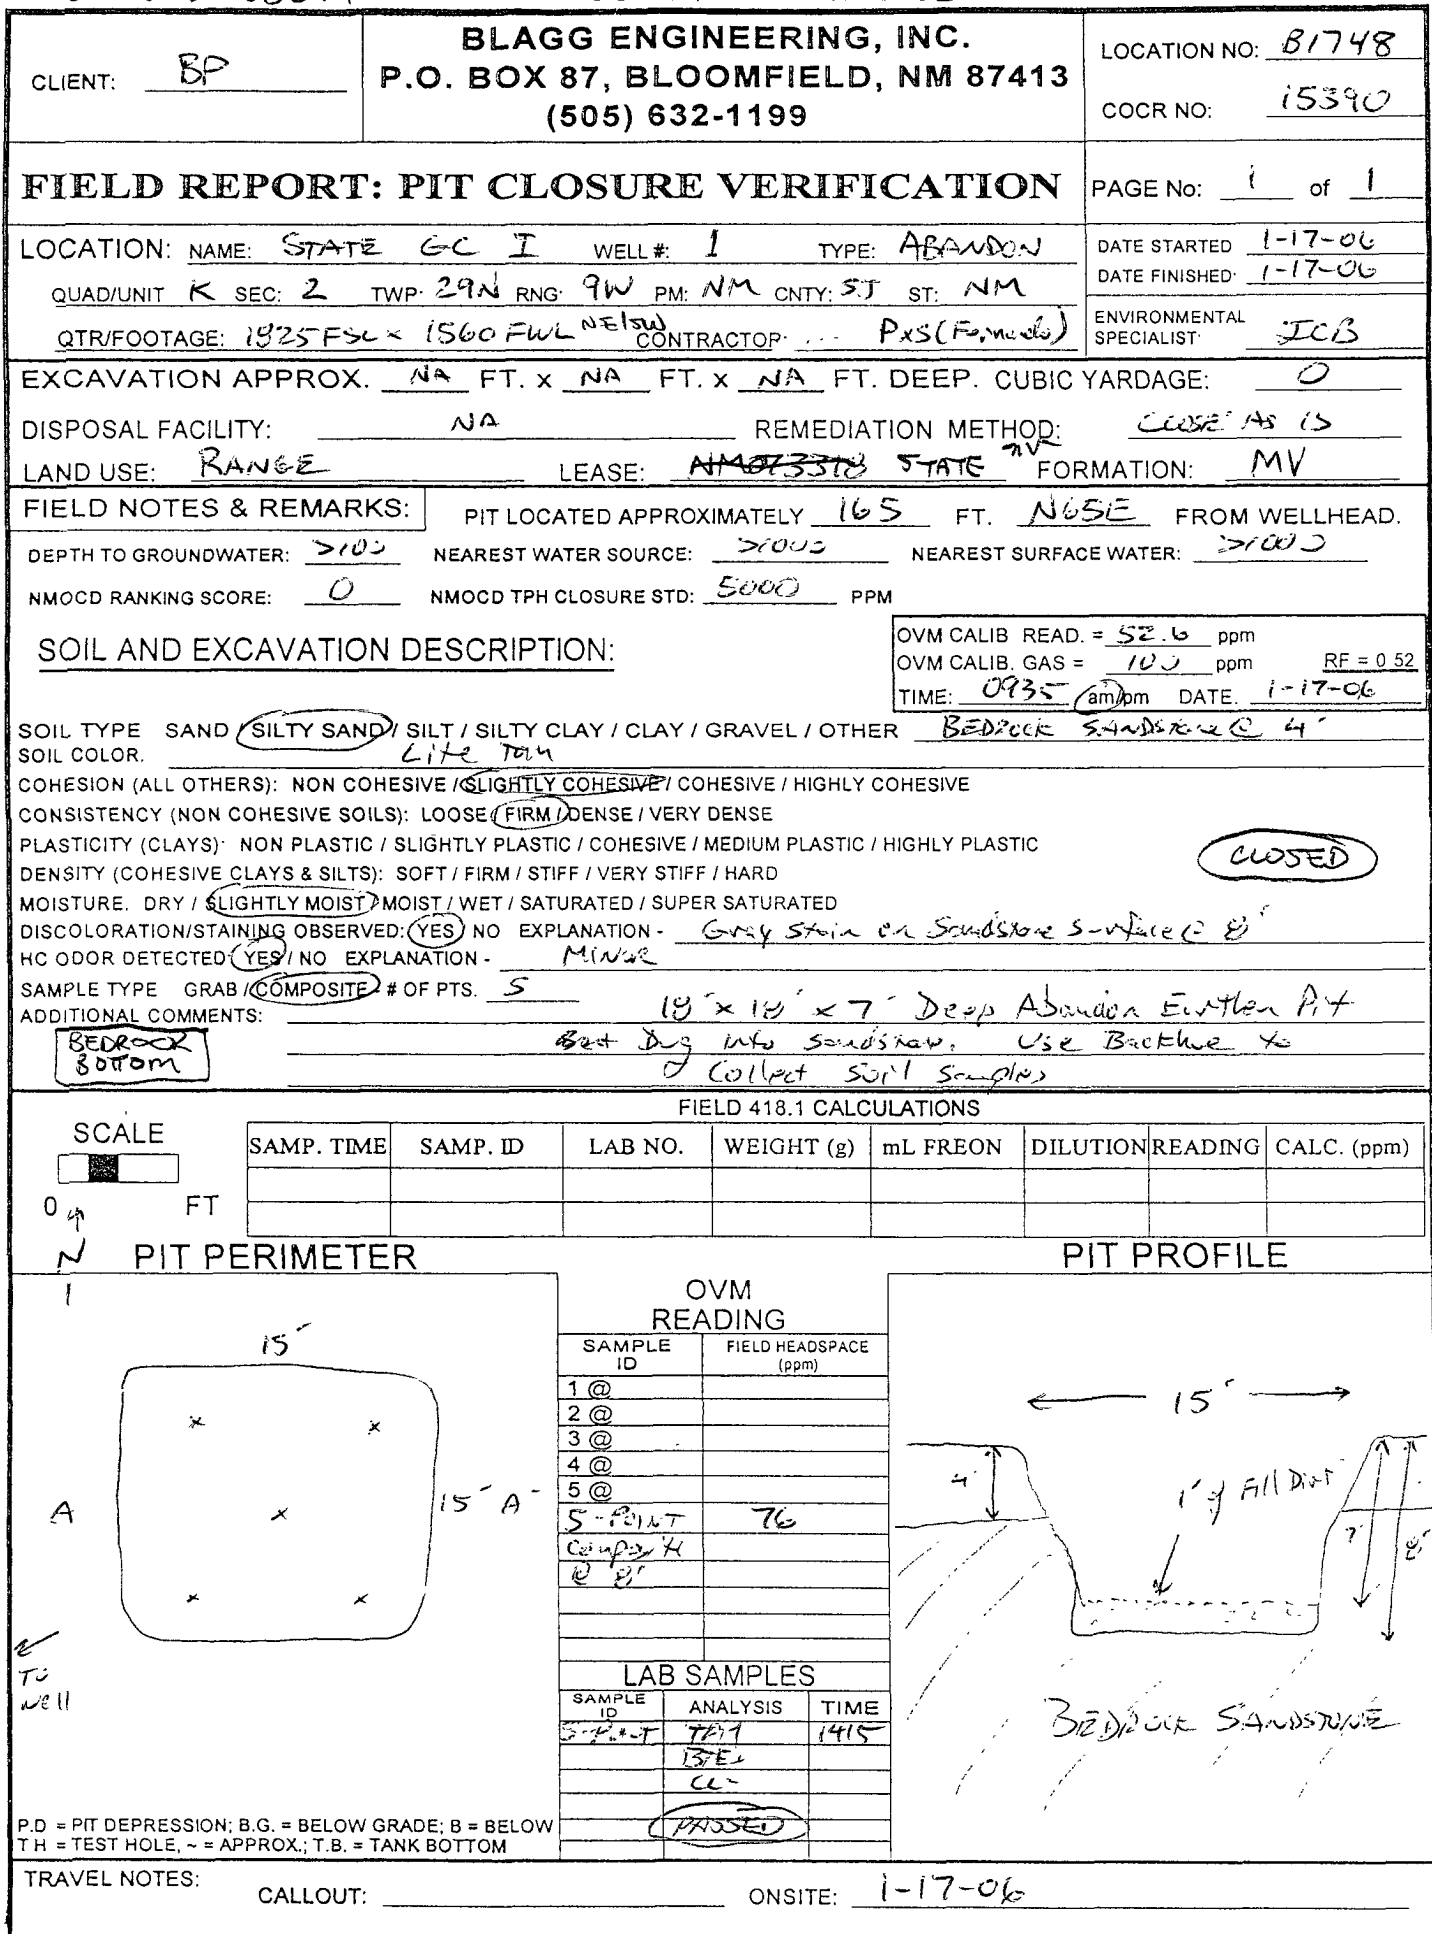 BLAGG ENGINEERING, INC.
P.O. BOX 87, BLOOMFIELD, NM 87413
(505) 632-1199
CLIENT: BP
LOCATION NO: B1748
COCR NO: 15390
FIELD REPORT: PIT CLOSURE VERIFICATION
PAGE No: 1 of 1
LOCATION: NAME: STATE GC I WELL #: 1 TYPE: ABANDON
DATE STARTED 1-17-06
DATE FINISHED: 1-17-06
QUAD/UNIT K SEC: 2 TWP: 29N RNG: 9W PM: NM CNTY: SJ ST: NM
QTR/FOOTAGE: 1825 FSL x 1560 FWL NE/SW CONTRACTOR: P&S
ENVIRONMENTAL SPECIALIST: JCB
EXCAVATION APPROX. NA FT. x NA FT. x NA FT. DEEP. CUBIC YARDAGE: 0
DISPOSAL FACILITY: NA REMEDIATION METHOD: CLOSE AS IS
LAND USE: RANGE LEASE: STATE FORMATION: MV
FIELD NOTES & REMARKS: PIT LOCATED APPROXIMATELY 165 FT. N65E FROM WELLHEAD.
DEPTH TO GROUNDWATER: >100 NEAREST WATER SOURCE: >1000 NEAREST SURFACE WATER: >1000
NMOCD RANKING SCORE: 0 NMOCD TPH CLOSURE STD: 5000 PPM
SOIL AND EXCAVATION DESCRIPTION:
OVM CALIB READ. = 52.6 ppm
OVM CALIB. GAS = 100 ppm RF = 0 52
TIME: 0935 am/pm DATE. 1-17-06
SOIL TYPE SAND / SILTY SAND / SILT / SILTY CLAY / CLAY / GRAVEL / OTHER BEDROCK SANDSTONE @ 4'
SOIL COLOR. Lite Tan
COHESION (ALL OTHERS): NON COHESIVE / SLIGHTLY COHESIVE / COHESIVE / HIGHLY COHESIVE
CONSISTENCY (NON COHESIVE SOILS): LOOSE / FIRM / DENSE / VERY DENSE
PLASTICITY (CLAYS): NON PLASTIC / SLIGHTLY PLASTIC / COHESIVE / MEDIUM PLASTIC / HIGHLY PLASTIC
CLOSED
DENSITY (COHESIVE CLAYS & SILTS): SOFT / FIRM / STIFF / VERY STIFF / HARD
MOISTURE. DRY / SLIGHTLY MOIST / MOIST / WET / SATURATED / SUPER SATURATED
DISCOLORATION/STAINING OBSERVED: YES / NO EXPLANATION - Gray Stain on Sandstone Surface @ 8'
HC ODOR DETECTED: YES / NO EXPLANATION - MINOR
SAMPLE TYPE GRAB / COMPOSITE # OF PTS. 5
ADDITIONAL COMMENTS: 18' x 18' x 7' Deep Abandon Earthen Pit
BEDROCK BOTTOM
Dug into Sandstone. Use Backhoe to
Collect Soil Samples
FIELD 418.1 CALCULATIONS
SCALE
0 FT
SAMP. TIME SAMP. ID LAB NO. WEIGHT (g) mL FREON DILUTION READING CALC. (ppm)
N
PIT PERIMETER
PIT PROFILE
OVM
READING
SAMPLE ID FIELD HEADSPACE (ppm)
1 @
2 @
3 @
4 @
5 @
5-POINT 76
Composite
@ 8'
15'
A
15' A'
To
well
15'
4'
1' of Fill Dirt
7'
8'
BEDROCK SANDSTONE
LAB SAMPLES
SAMPLE ID ANALYSIS TIME
5-Point TPH 1415
BTEX
CL-
PASSED
P.D = PIT DEPRESSION; B.G. = BELOW GRADE; B = BELOW
T H = TEST HOLE, ~ = APPROX.; T.B. = TANK BOTTOM
TRAVEL NOTES:
CALLOUT: ONSITE: 1-17-06